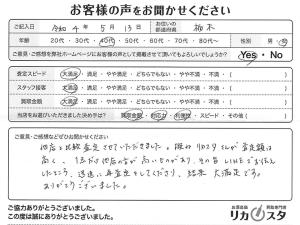 お客様の声をお聞かせください
ご記入日 令和 4 年 5 月 13 日 お住いの都道府県 栃木
年齢 20代・30代・40代・50代・60代・70代・80代〜 性別 男・
ご意見・ご感想を弊社ホームページにお客様の声として掲載させて頂いてもよろしいでしょうか? Yes・No
査定スピード 大満足・満足・やや満足・どちらでもない・やや不満・不満・( )
スタッフ接客 大満足・満足・やや満足・どちらでもない・やや不満・不満・( )
買取金額 大満足・満足・やや満足・どちらでもない・やや不満・不満・( )
当店をお選びいただきました決め手は? 買取金額・対応力・利便性・スピード・その他( )
ご意見・ご感想などぜひお聞かせください
他店と比較査定させていただきました。 リカスタさんが査定額は
高く、1点だけ他店の方が高いものがあり、その旨LINEでお伝え
したところ、迅速に再査定をしてくださり、結果大満足です。
ありがとうございました。
ご協力ありがとうございました。
この度は誠にありがとうございました。
お酒高価買取専門店
リカスタ